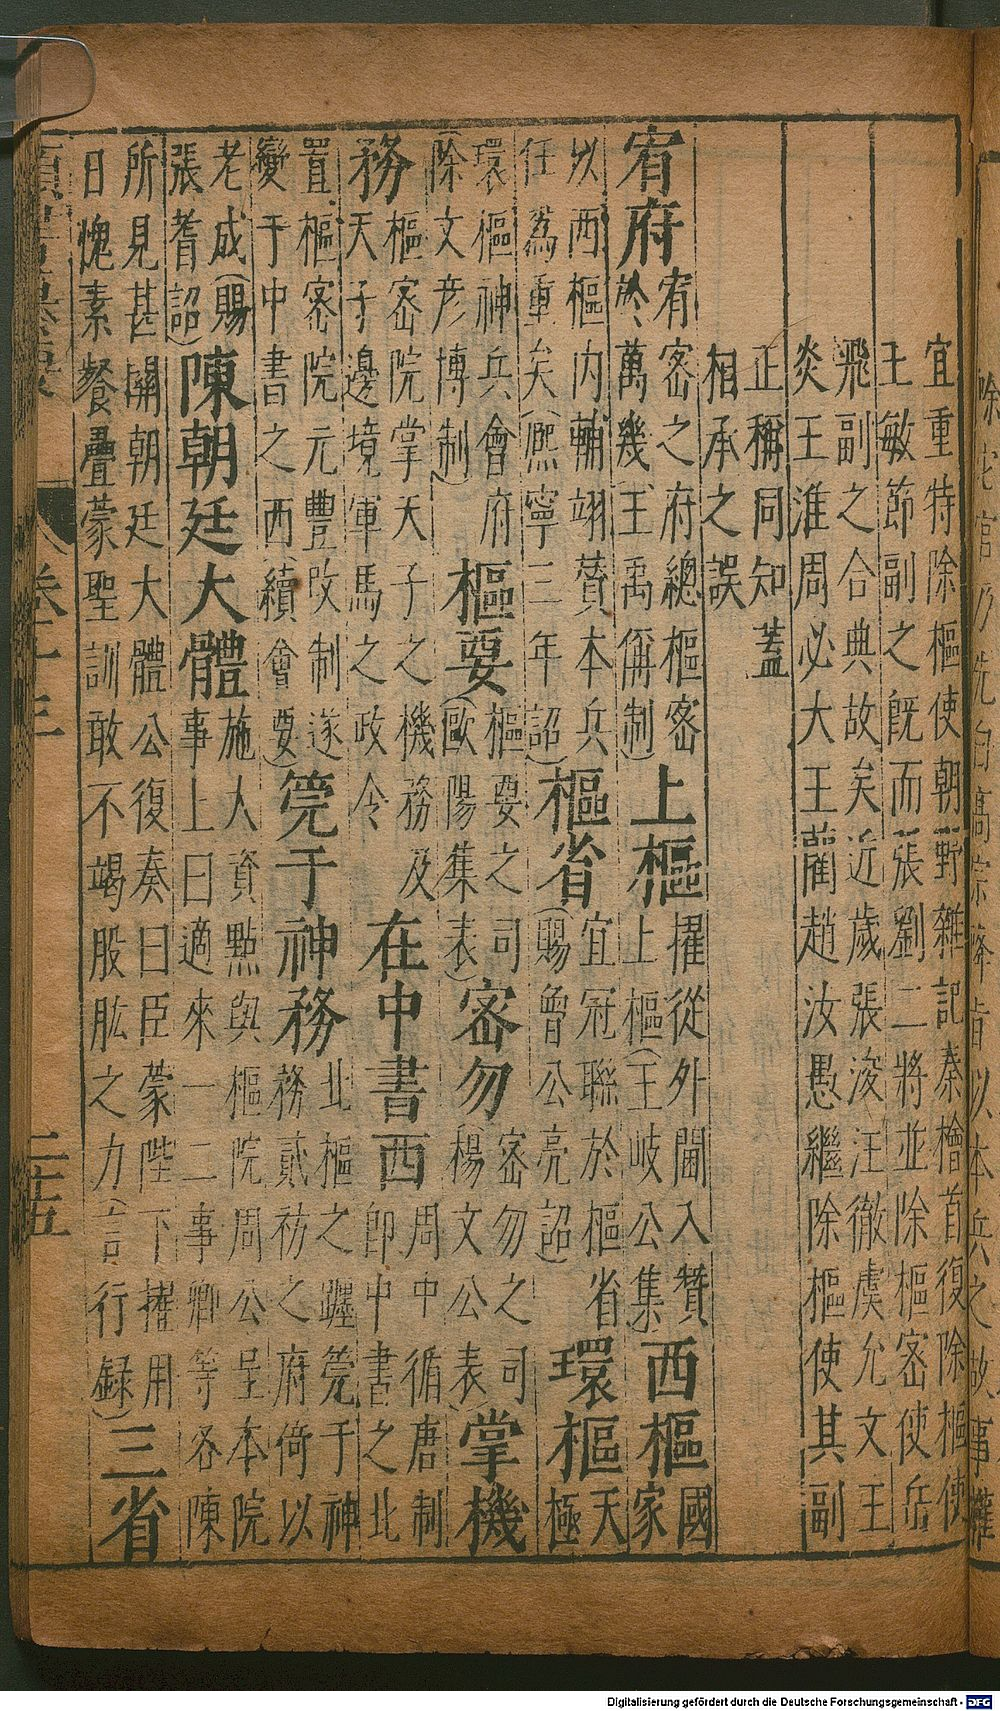 宜重特除樞使朝野雜記秦檜首復除樞使
王敏節副之旣而張劉二將並除樞密使岳
飛副之合典故矣近歲張浚汪徹虞允文王
炎王淮周必大王藺趙汝愚繼除樞使其副
正稱同知蓋
相承之誤
宥府
宥密之府總樞密
於萬幾(王禹偁制)
上樞
擢從外閫入贊
上樞(王岐公集)
西樞
國
家
以西樞內輔翊贊本兵
任為重矣(熙寧三年詔)
樞省
宜冠聯於樞省
(賜曾公亮詔)
環樞
天
極
環樞神兵會府
(除文彥博制)
樞要
樞要之司
(歐陽集表)
密勿
密勿之司
(楊文公表)
掌機
務
樞密院掌天子之機務及
天子邊境軍馬之政令
在中書西
周中循唐制
卽中書之北
置樞密院元豐改制遂
變于中書之西(續會要)
筦于神務
北樞之躔筦于神
務貳祊之府倚以
老成(賜
張耆詔)
陳朝廷大體
施大資點與樞院周公呈本院
事上曰適來一二事卿等各陳
所見甚關朝廷大體公復奏曰臣蒙陛下擢用
日愧素餐疊蒙聖訓敢不竭股肱之力(言行録)
三省
卷
三
二十五
以本兵之故事權
Digitalisierung gefördert durch die Deutsche Forschungsgemeinschaft - DFG